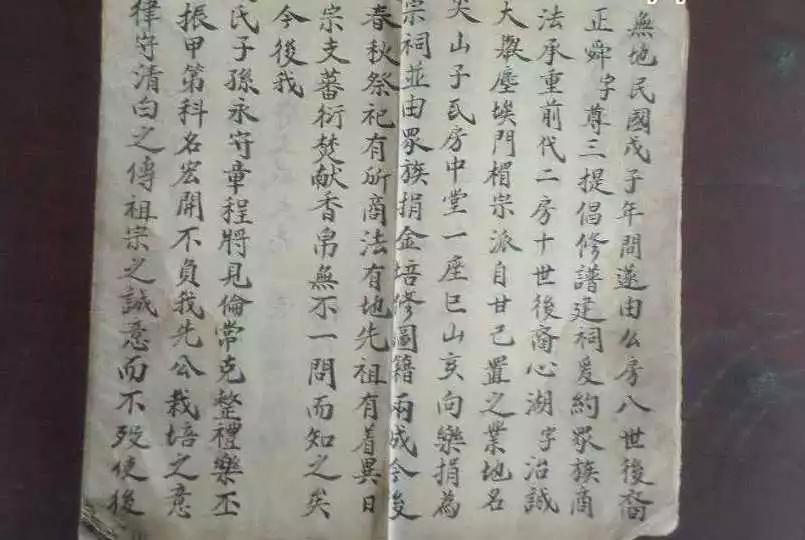 無地民國戊子年間遂由公房八世後裔
正舜字尊三提倡修譜建祠爰約眾族商
法承重前代二房十世後裔心湖字治誠
大舉塵埃門楣宗派自甘己置之業地名
尖山子瓦房中堂一座巳山亥向樂捐為
宗祠並由眾族捐金培修圖籍兩成今後
春秋祭祀有所商法有地先祖有着異日
宗支蕃衍焚献香帛無不一問而知之矣
今後我
氏子孫永守章程將見倫常克整禮樂丕
振甲第科名宏開不負我先公栽培之意
律守清白之傳祖宗之誠意而不歿使後